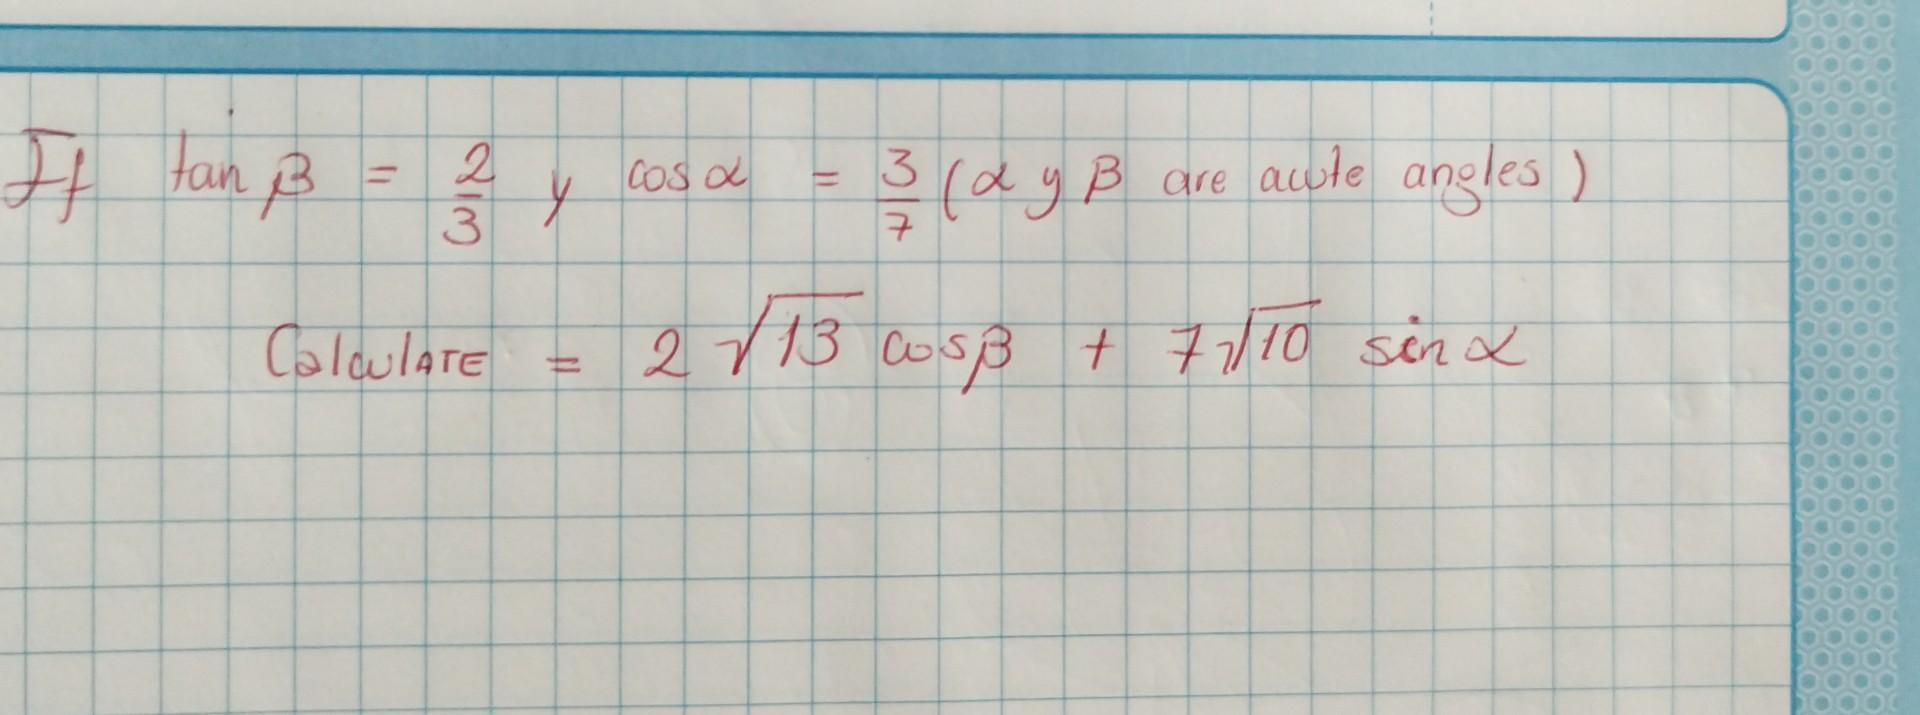 If tan β = 2/3 y cos α = 3/7 (α y β are acute angles)
CalculATE = 2 √13 cos β + 7√10 sin α